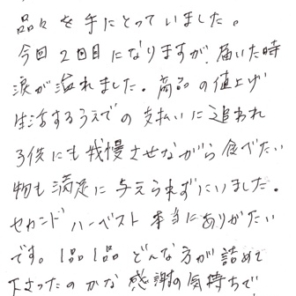 品々を手にとっていました。
今回2回目になりますが、届いた時
涙が溢れました。商品の値上げ
生活するうえでの支払いに追われ
子供にも我慢させながら食べたい
物も満足に与えられずにいました。
セカンドハーベスト本当にありがたい
です。1品1品どんな方が詰めて
下さったのかな感謝の気持ちで